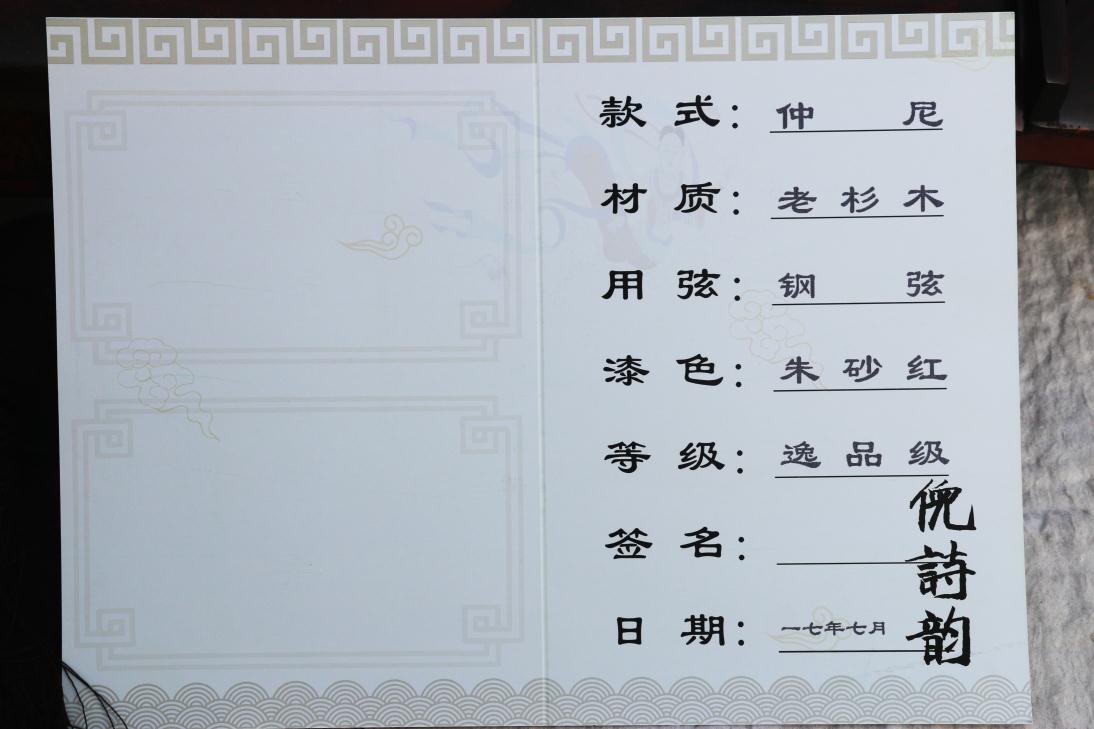 款式：仲尼
材质：老杉木
用弦：钢弦
漆色：朱砂红
等级：逸品级
签名：倪詩韵
日期：一七年七月